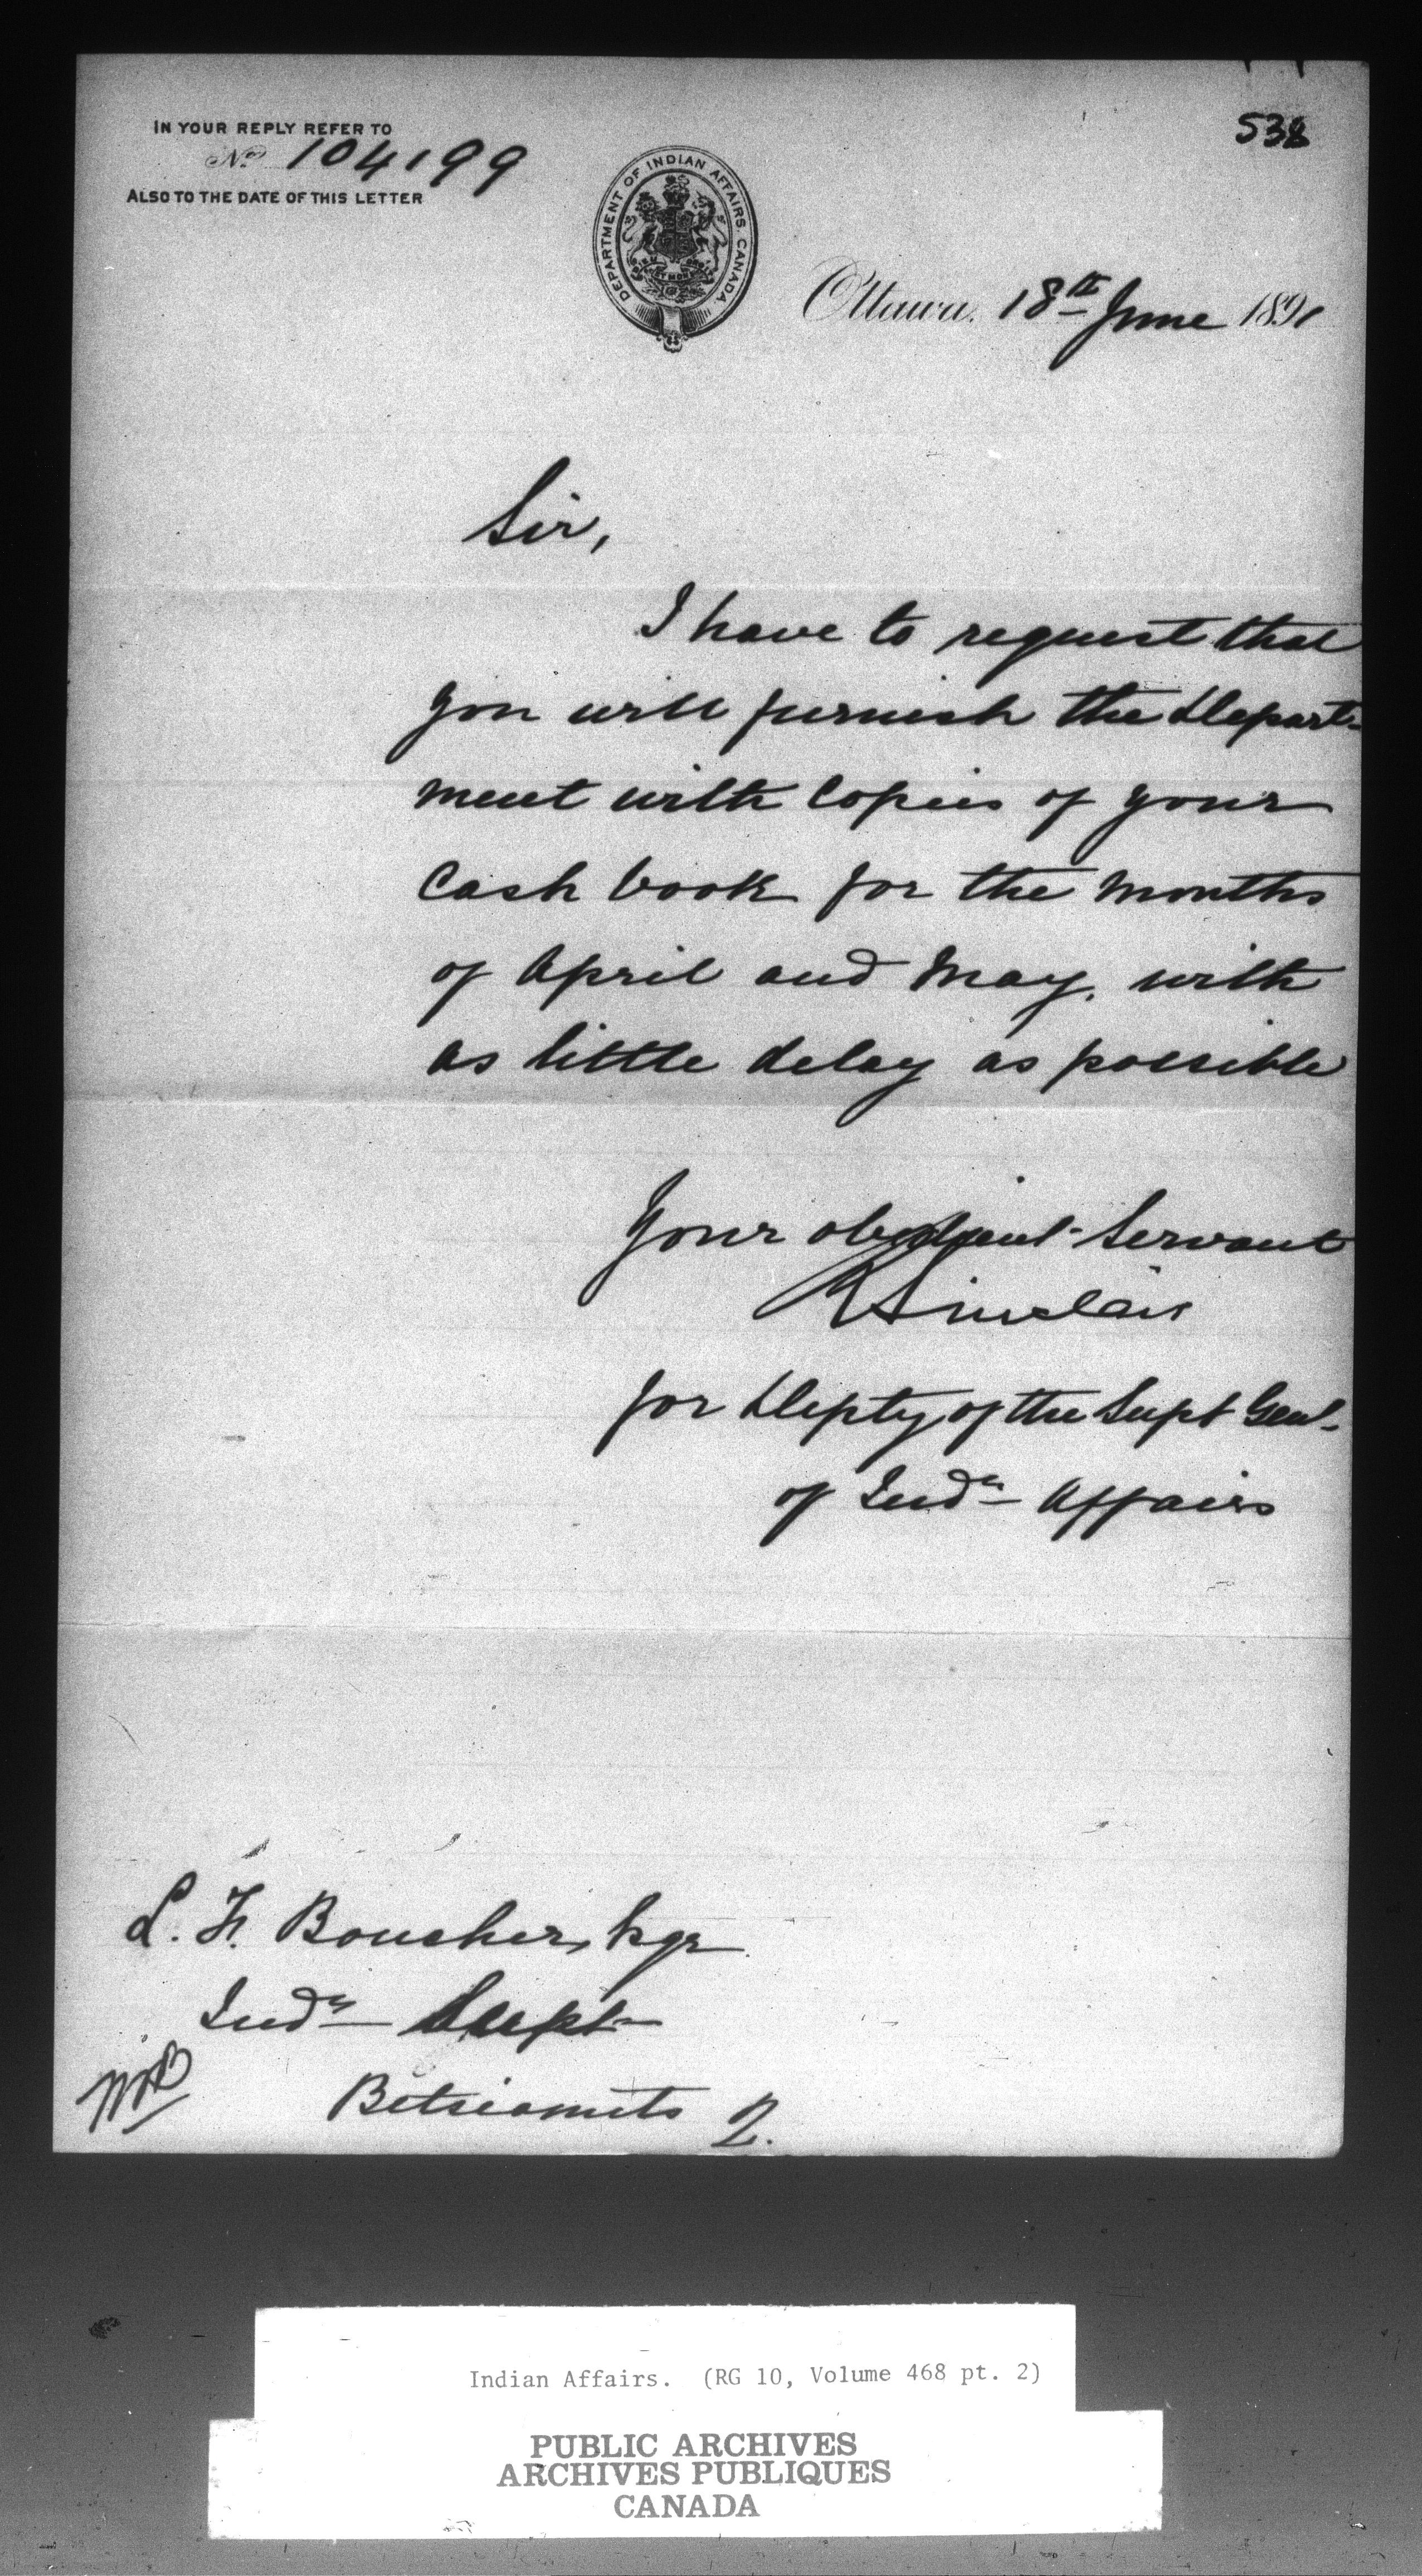 538
IN YOUR REPLY REFER TO
No 104199
ALSO TO THE DATE OF THIS LETTER
DEPARTMENT OF INDIAN AFFAIRS CANADA
Ottawa, 18th June 1891
Sir,
I have to request that
you will furnish the Depart-
ment with copies of your
Cash book for the months
of April and May, with
as little delay as possible
Your obedient Servant
R Sinclair
for Depty of the Supt Genl
of Indn Affairs
L. F. Boucher, Esqr
Indn Supt
Betsiamits Q.
Indian Affairs. (RG 10, Volume 468 pt. 2)
PUBLIC ARCHIVES
ARCHIVES PUBLIQUES
CANADA